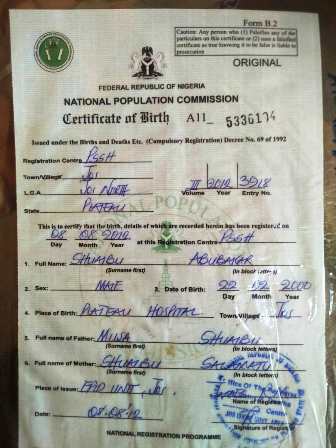 Form B.2
Caution: Any person who (1) Falsifies any of the
particulars on this certificate or (2) uses a falsified
certificate as true knowing it to be false is liable to
prosecution
ORIGINAL
FEDERAL REPUBLIC OF NIGERIA
NATIONAL POPULATION COMMISSION
Certificate of Birth A11
Issued under the Births and Deaths Etc. (Compulsory Registration) Decree No. 69 of 1992
Registration Centre PSSH
Town/Village JOS
L.G.A JOS NORTH Volume III 2012 Entry No.
State PLATEAU
This is to certify that the birth, details of which are recorded herein has been registered on
08 08 2012 at this Registration Centre PSSH
Day Month Year
1. Full Name: SHUAIBU ABUBAKAR
(Surname first) (In block letters)
2. Sex: MALE 3. Date of Birth: 22 12 2000
Day Month Year
4. Place of Birth: PLATEAU HOSPITAL Town/Village JOS
5. Full name of Father: MUSA SHUAIBU
(Surname first) (In block letters)
6. Full name of Mother: SHUAIBU
(Surname first) (In block letters)
Place of Issue: UNIT, JOS
Name of Registrar
Date: 08.08.12
Signature of Registrar
NATIONAL REGISTRATION PROGRAMME